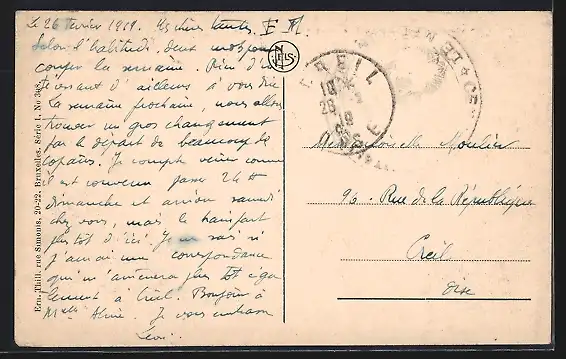 Le 26 février 1919. Mes chères tantes, F. M.
Selon l'habitude, deux mots pour
couper la semaine. Rien d'in-
téressant d'ailleurs à vous dire
La semaine prochaine nous allons
trouver un gros changement
par le départ de beaucoup de
copains. Je compte venir comme
il est convenu passer 24 h
dimanche et arriver samedi
chez vous, mais le transport
plutôt d'ici. Je ne sais si
j'aurai une correspondance
qui m'amènera plus tôt éga-
lement à Creil. Bonjour à
Melle Aline. Je vous embrasse
Léon.
Ern. Thill, rue Simonis, 20-22, Bruxelles. Série 1, No
NELS
CREIL
OISE
Mesdemoiselles Moulin
96 - Rue de la République
Creil
Oise